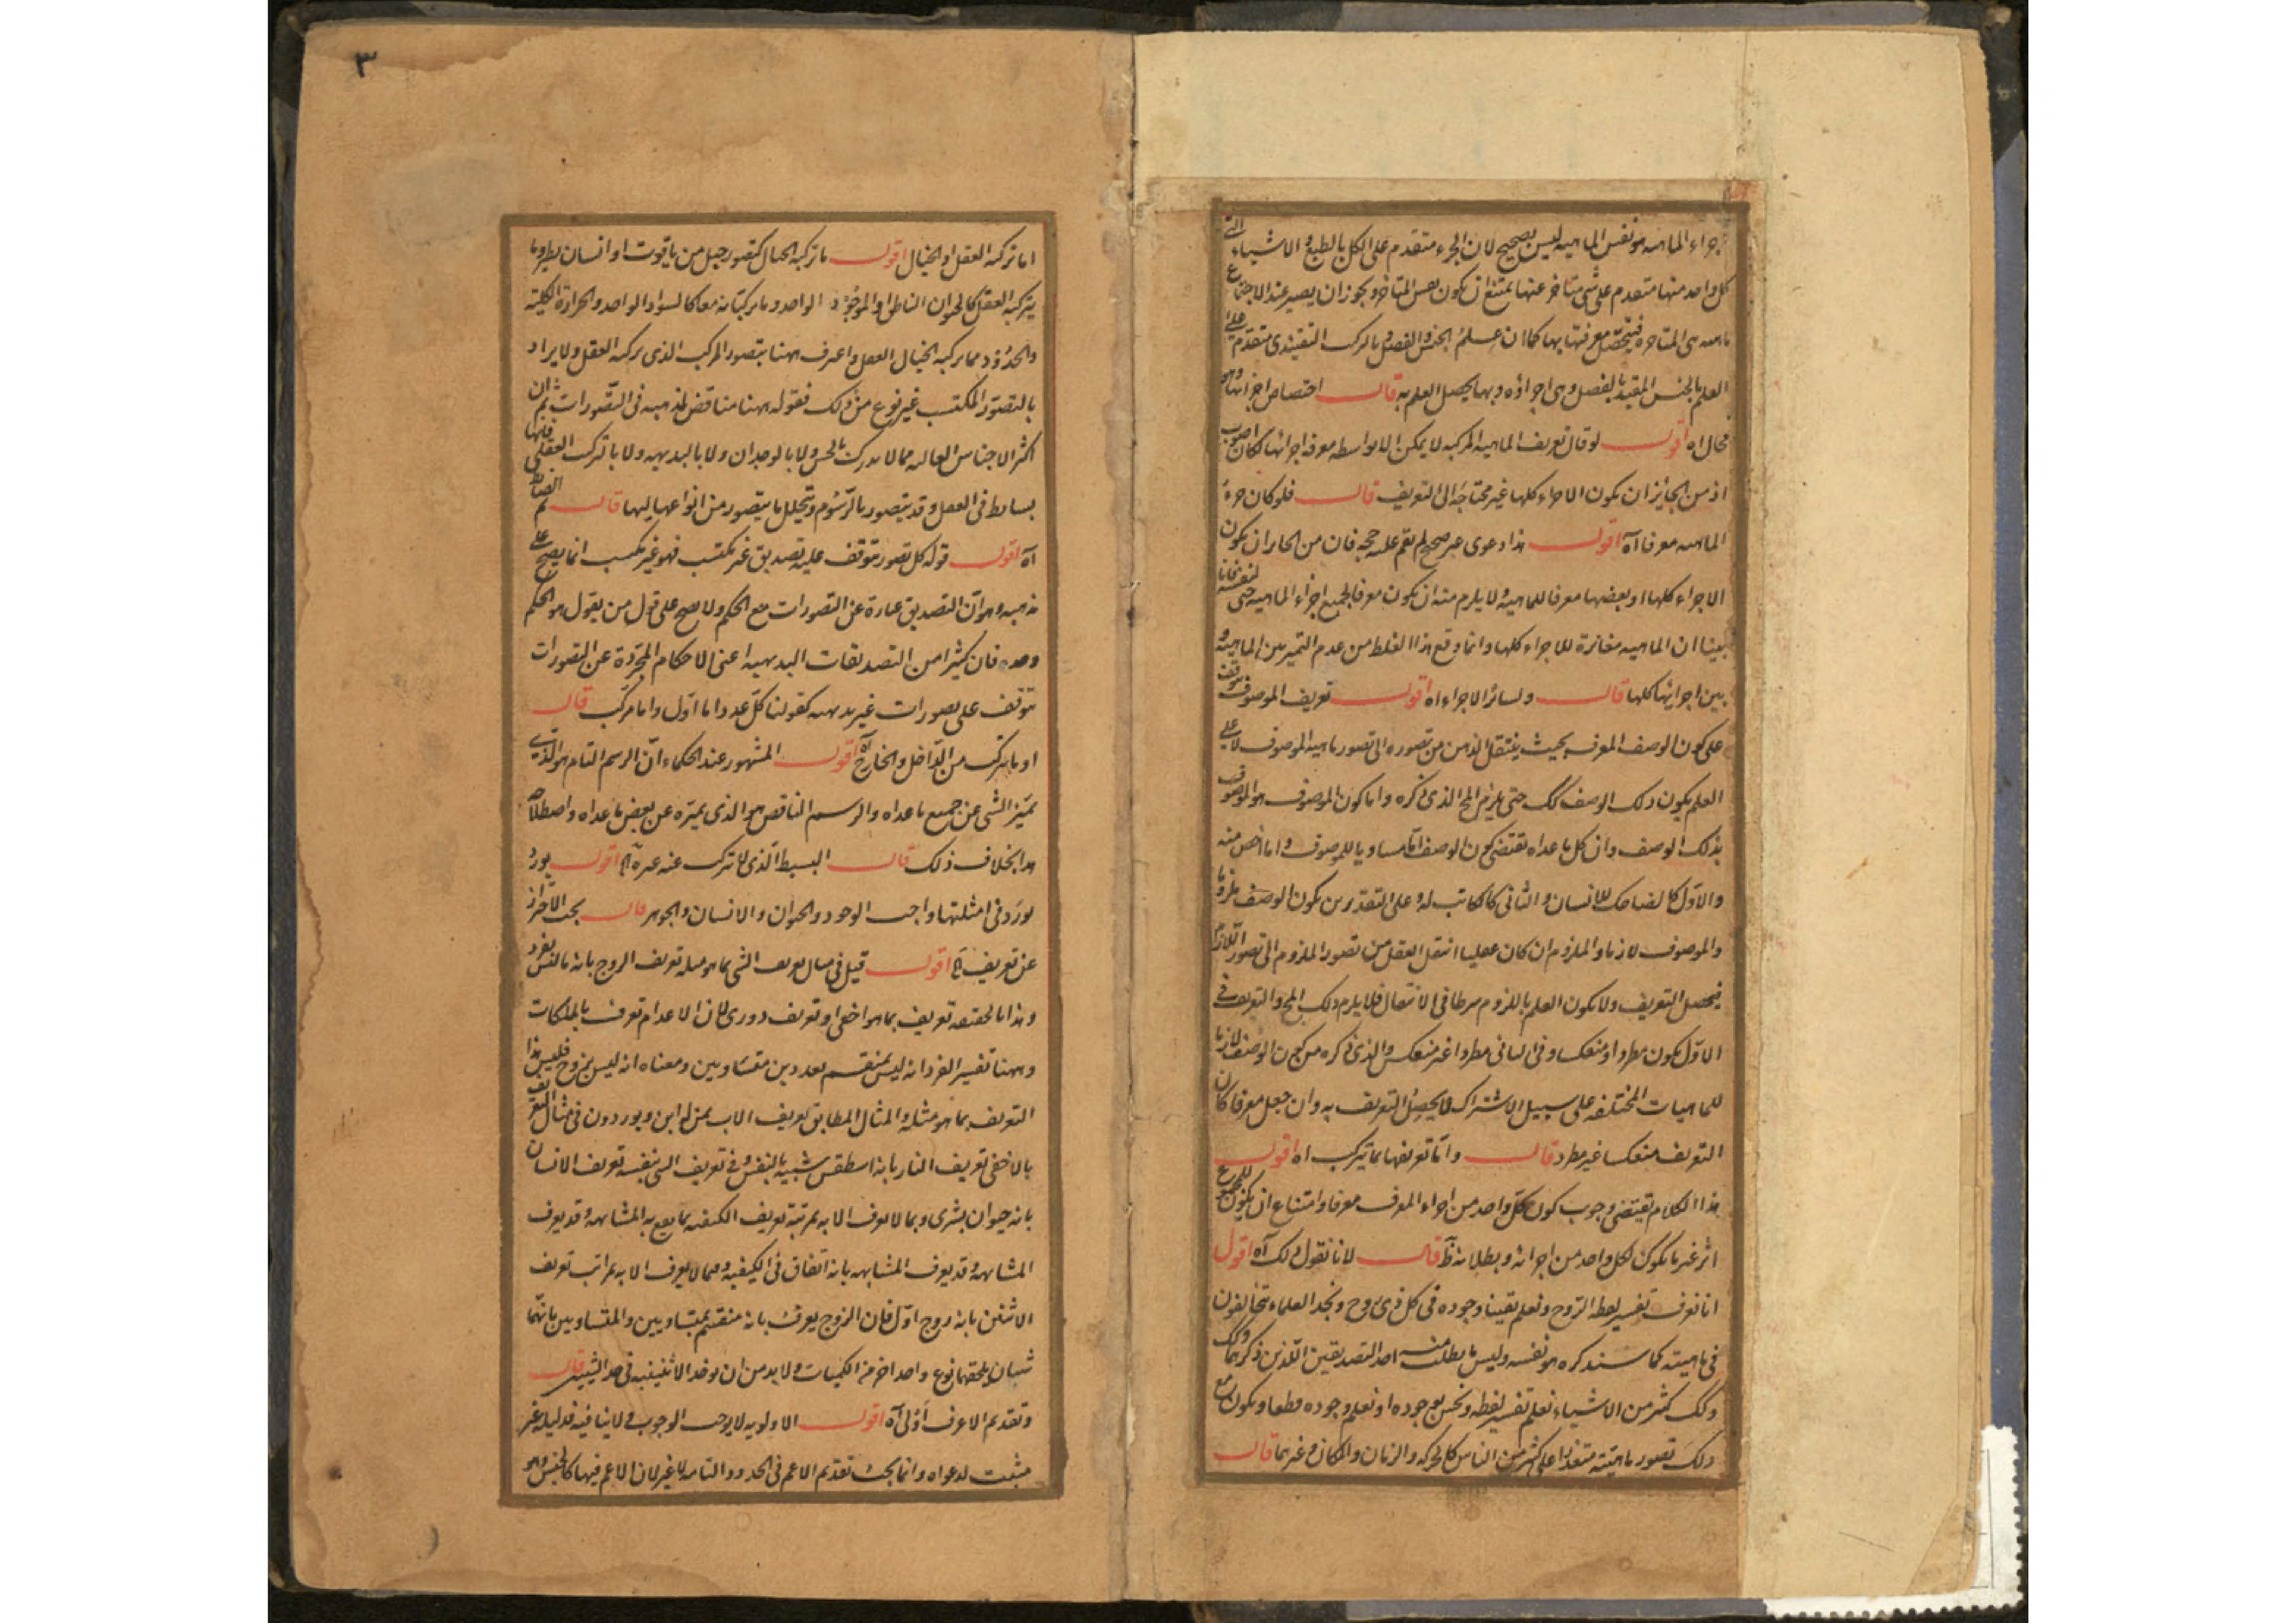 اجزاء الماهيه هو نفس الماهيه ليس بصحيح لان الجزء متقدم على الكل بالطبع والاشياء التى
كل واحد منها متقدم على شى متاخر عنها يمتنع ان يكون نفس المتاخر ويجوز ان يصير عند الاجتماع
ماهيه هى المتاخره فيتحصل معرفتها بها كما ان علم الجنس والفصل بالتركيب التقييدى متقدم على
العلم بالجنس المقيد بالفصل وهى اجزاؤه وبها يحصل العلم به قال اختصاص اجزائها وهو
محال اه اقول لو قال تعريف الماهيه المركبه لا يمكن الا بواسطه معرفه اجزائها لكان اصوب
اذ من الجائز ان يكون الاجزاء كلها غير محتاجة الى التعريف قال فلو كان جزء
الماهيه معرفا آه اقول هذا دعوى غير صحيح لم تقم عليه حجه فان من الجايز ان يكون
الاجزاء كلها او بعضها معرفا للماهية ولا يلزم منه ان يكون معرفا لجميع اجزاء الماهيه حتى لنفسه فانا
بينا ان الماهيه مغائرة للاجزاء كلها وانما وقع هذا الغلط من عدم التميز بين الماهية و
بين اجزائها كلها قال ولسائر الاجزاء اه اقول تعريف الموصوف يتوقف
على كون الوصف المعرف بحيث ينتقل الذهن من تصوره الى تصور ماهيه الموصوف لا على
العلم بكون ذلك الوصف كك حتى يلزم المح الذى ذكره واما كون الموصوف هو الموصوف
بذلك الوصف دون كل ما عداه تقتضى كون الوصف اما مساويا للموصوف واما اخص منه
والاول كالضاحك للانسان والثانى كالكاتب له وعلى التقديرين يكون الوصف ملزوما
والموصوف لازما والملزوم ان كان عقليا انتقل العقل من تصور الملزوم الى تصور اللازم
فيحصل التعريف ولا يكون العلم باللزوم شرطا فى الانتقال فلا يلزم ذلك المح والتعريف فى
الاول يكون مطردا ومنعكسا وفى الثانى مطردا غير منعكس والذى ذكره من كون الوصف لازما
للماهيات المختلفه على سبيل الاشتراك لا يحصل التعريف به وان جعل معرفا كان
التعريف منعكسا غير مطرد قال واما تعريفها بما يتركب اه اقول
هذا الكلام تقتضى وجوب كون كل واحد من اجزاء المعرف معرفا وامتناع ان يكون للمجموع
اثر غير ما يكون لكل واحد من اجزائه وبطلانه ظ قال لانا نقول ذلك آه اقول
انا نعرف تفسير لفظه الروح ونعلم يقينا وجوده فى كل ذى روح ونجد العلماء يتخالفون
فى ماهيته كما سنذكره هو نفسه وليس ما يطلب منه احد التصديقين اللذين ذكرهما وكك
وكك كثير من الاشياء نعلم تفسير لفظه ونحس بوجوده او نعلم وجوده قطعا ويكون مع
ذلك تصور ماهيته متعذرا على كثير من الناس كالحركه والزمان والمكان وغيرهما قال
٣
اما تركبه العقل او الخيال اقول ما تركبه الخيال كتصور جبل من ياقوت او انسان يطير وما
يتركبه العقل كالحيوان الناطق او الموجود الواحد وما يركبانه معا كالسواد الواحد والحرارة الكلية
والحدود مما يركبه الخيال العقل واعترف ههنا بتصور المركب الذى يركبه العقل ولا يراد
بالتصور المكتسب غير نوع من ذلك فقوله ههنا مناقض لمذهبه فى التصورات ثم ان
اكثر الاجناس العاليه مما لا يدرك بالحس ولا بالوجدان ولا بالبديهيه ولا بالتركيب العقلى فانها
بسايط فى العقل وقد يتصور بالرسوم وتحليل ما يتصور من انواعها اليها قال ثم الضابط
آه اقول قوله كل تصور يتوقف عليه تصديق غير مكتسب فهو غير مكتسب انما يصح على
مذهبه وهو ان التصديق عبارة عن التصورات مع الحكم ولا يصح على قول من يقول هو الحكم
وحده فان كثيرا من التصديقات البديهيه اعنى الاحكام المجردة عن التصورات
تتوقف على تصورات غير بديهيه كقولنا كل عدد اما اول واما مركب قال
او ما يتركب من الداخل والخارج آه اقول المشهور عند الحكماء ان الرسم التام هو الذى
يميز الشى عن جميع ما عداه والرسم الناقص هو الذى يميزه عن بعض ما عداه واصطلاح
هذا بخلاف ذلك قال البسيط الذى لا تركب عنه غيره آه اقول يورد
يورد فى امثلتها واجب الوجود والحيوان والانسان والجوهر قال يجب الاحتراز
عن تعريف اه اقول قيل فى مثال تعريف الشى بما هو مثله تعريف الزوج بانه ما ليس بفرد
وهذا بالحقيقه تعريف بما هو اخفى او تعريف دورى لان الاعدام تعرف بالملكات
وههنا تفسير الفرد انه ليس بمنقسم بعددين متساويين ومعناه انه ليس بزوج فليس هذا
التعريف بما هو مثله والمثال المطابق تعريف الاب بمن له ابن ويوردون فى مثال التعريف
بالاخفى تعريف النار بانه اسطقس شبيه بالنفس وفى تعريف الشى بنفسه تعريف الانسان
بانه حيوان بشرى وبما لا يعرف الا به بمرتبة تعريف الكيفيه بما يقع به المشابهه وقد يعرف
المشابهه وقد يعرف المشابهه بانه اتفاق فى الكيفية ومما لا يعرف الا به بمراتب تعريف
الاثنين بانه زوج اول فان الزوج يعرف بانه منقسم بمتساويين والمتساويين بانهما
شيئان يلحقهما نوع واحد اخر من الكميات ولا بد من ان يوخذ الاثنينيه فى حد الشيئين قال
وتقديم الاعرف اولى آه اقول الاولويه لا يوجب الوجوب ولا ينافيه فدليله غير
مثبت لدعواه وانما يجب تقديم الاعم فى الحدود التامه لا غير لان الاعم فيها كالجنس وهو